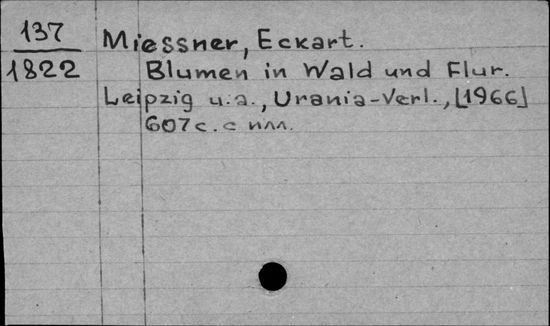 137
1822
Miessner, Eckart.
Blumen in Wald und Flur.
Leipzig u.a., Urania-Verl., [1966]
607c. с илл.